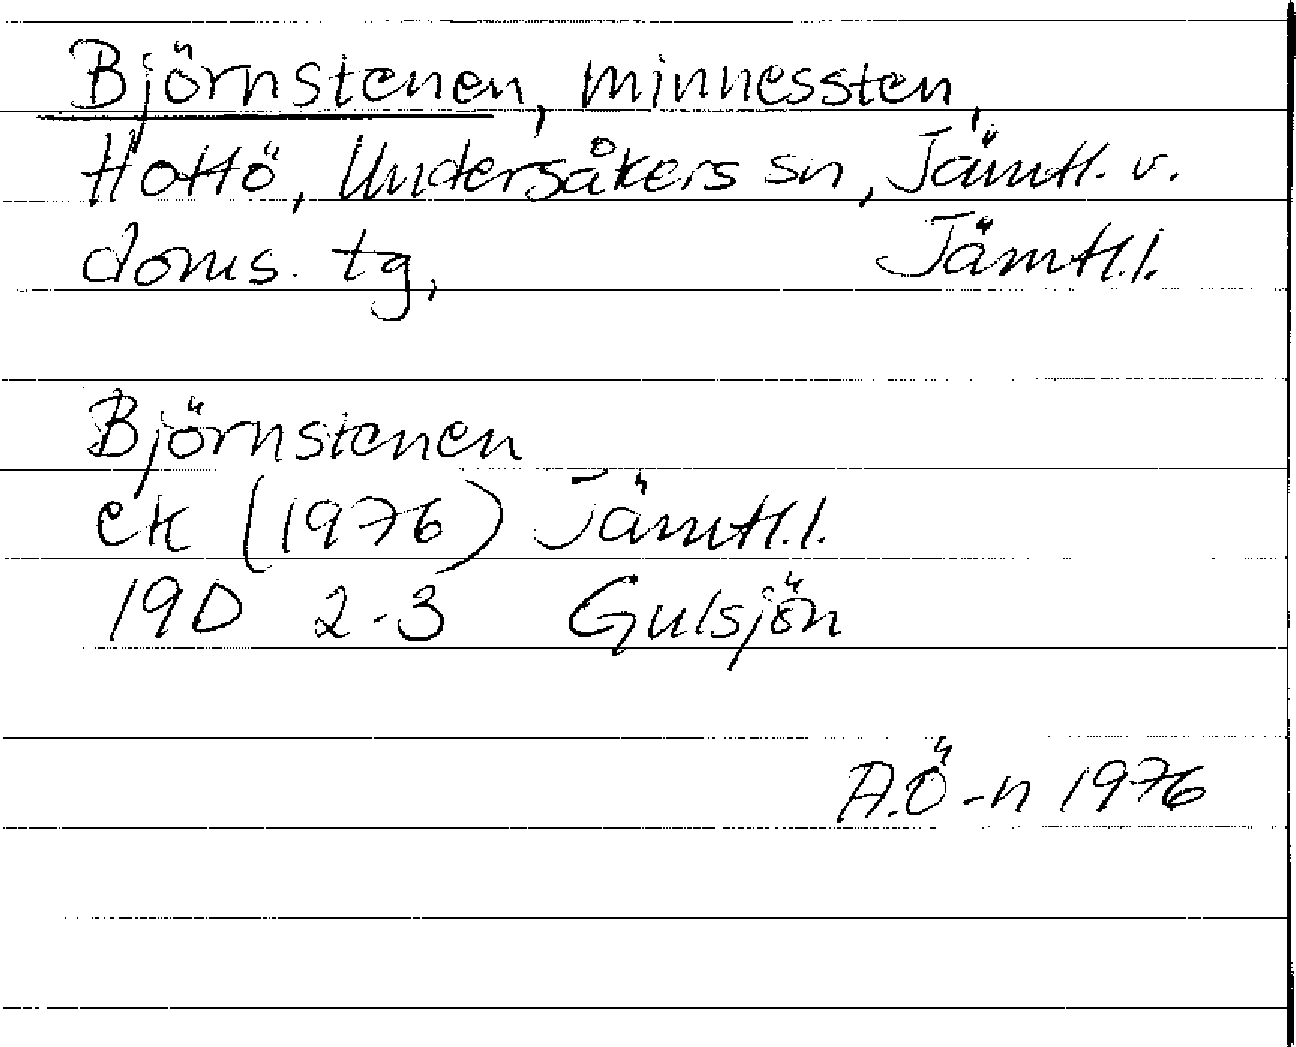 Björnstenen, minnessten,
Hottö, Undersåkers sn, Jämtl. v.
doms. tg, Jämtl.l.
Björnstenen
ek (1976) Jämtl.l.
19D 2-3 Gulsjön
A.Ö-n 1976